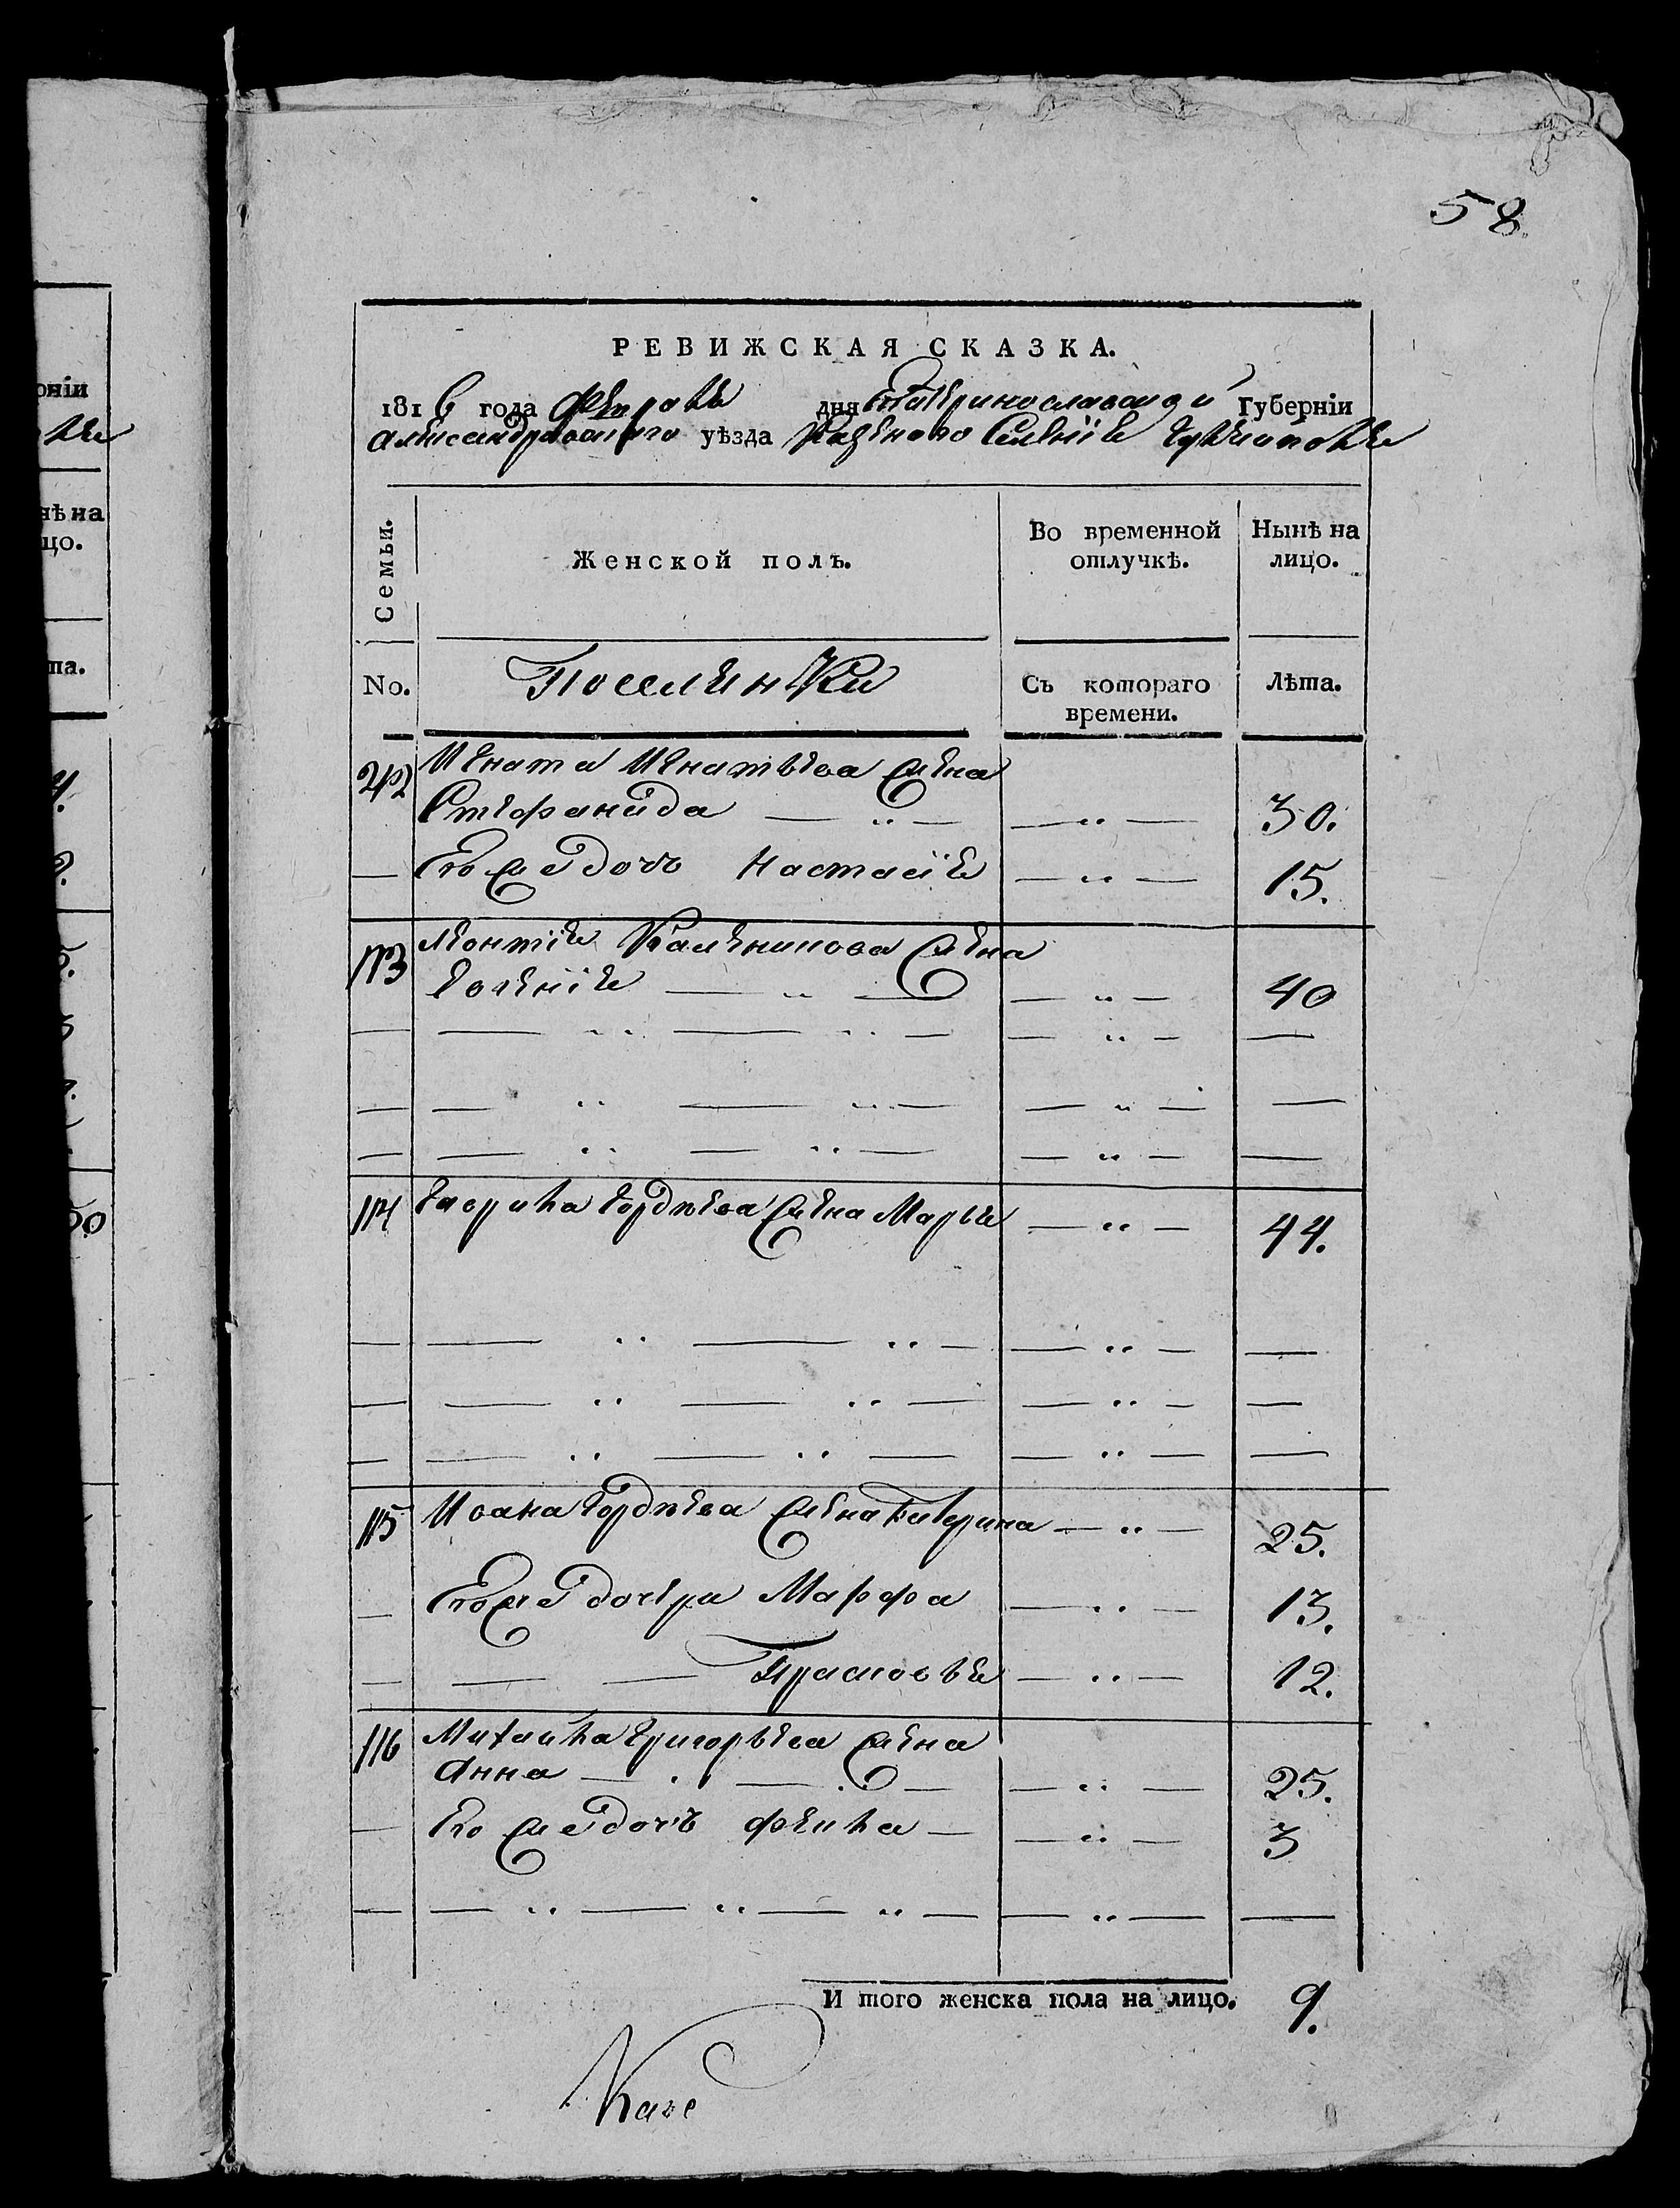 58.
РЕВИЖСКАЯ СКАЗКА.
1816 года февраля дня Екатеринославской Губерніи
александровского уѣзда Казенного Селения
Семьи.
Женской полъ.
Во временной отлучкѣ.
Нынѣ на лицо.
No.
Поселянки
Съ котораго времени.
Лѣта.
Игната Игнатьева жена
Стефанида — „ — — „ — 30.
— Его же дочь Настасия — „ — 15.
113 Леонтия жена
— „ — — „ — 40
114 Гаврила Гордѣева жена Марья — „ — 44.
115 Ивана Гордѣева жена Катерина — „ — 25.
— Его же дочери Марфа — „ — 13.
— — — Прасковья — „ — 12.
116 Михаила Григорьева жена
Анна — „ — — „ — 25.
— Его же дочь — — „ — 3
И того женска пола на лицо. 9.
оніи
ѣ на
цо.
та.